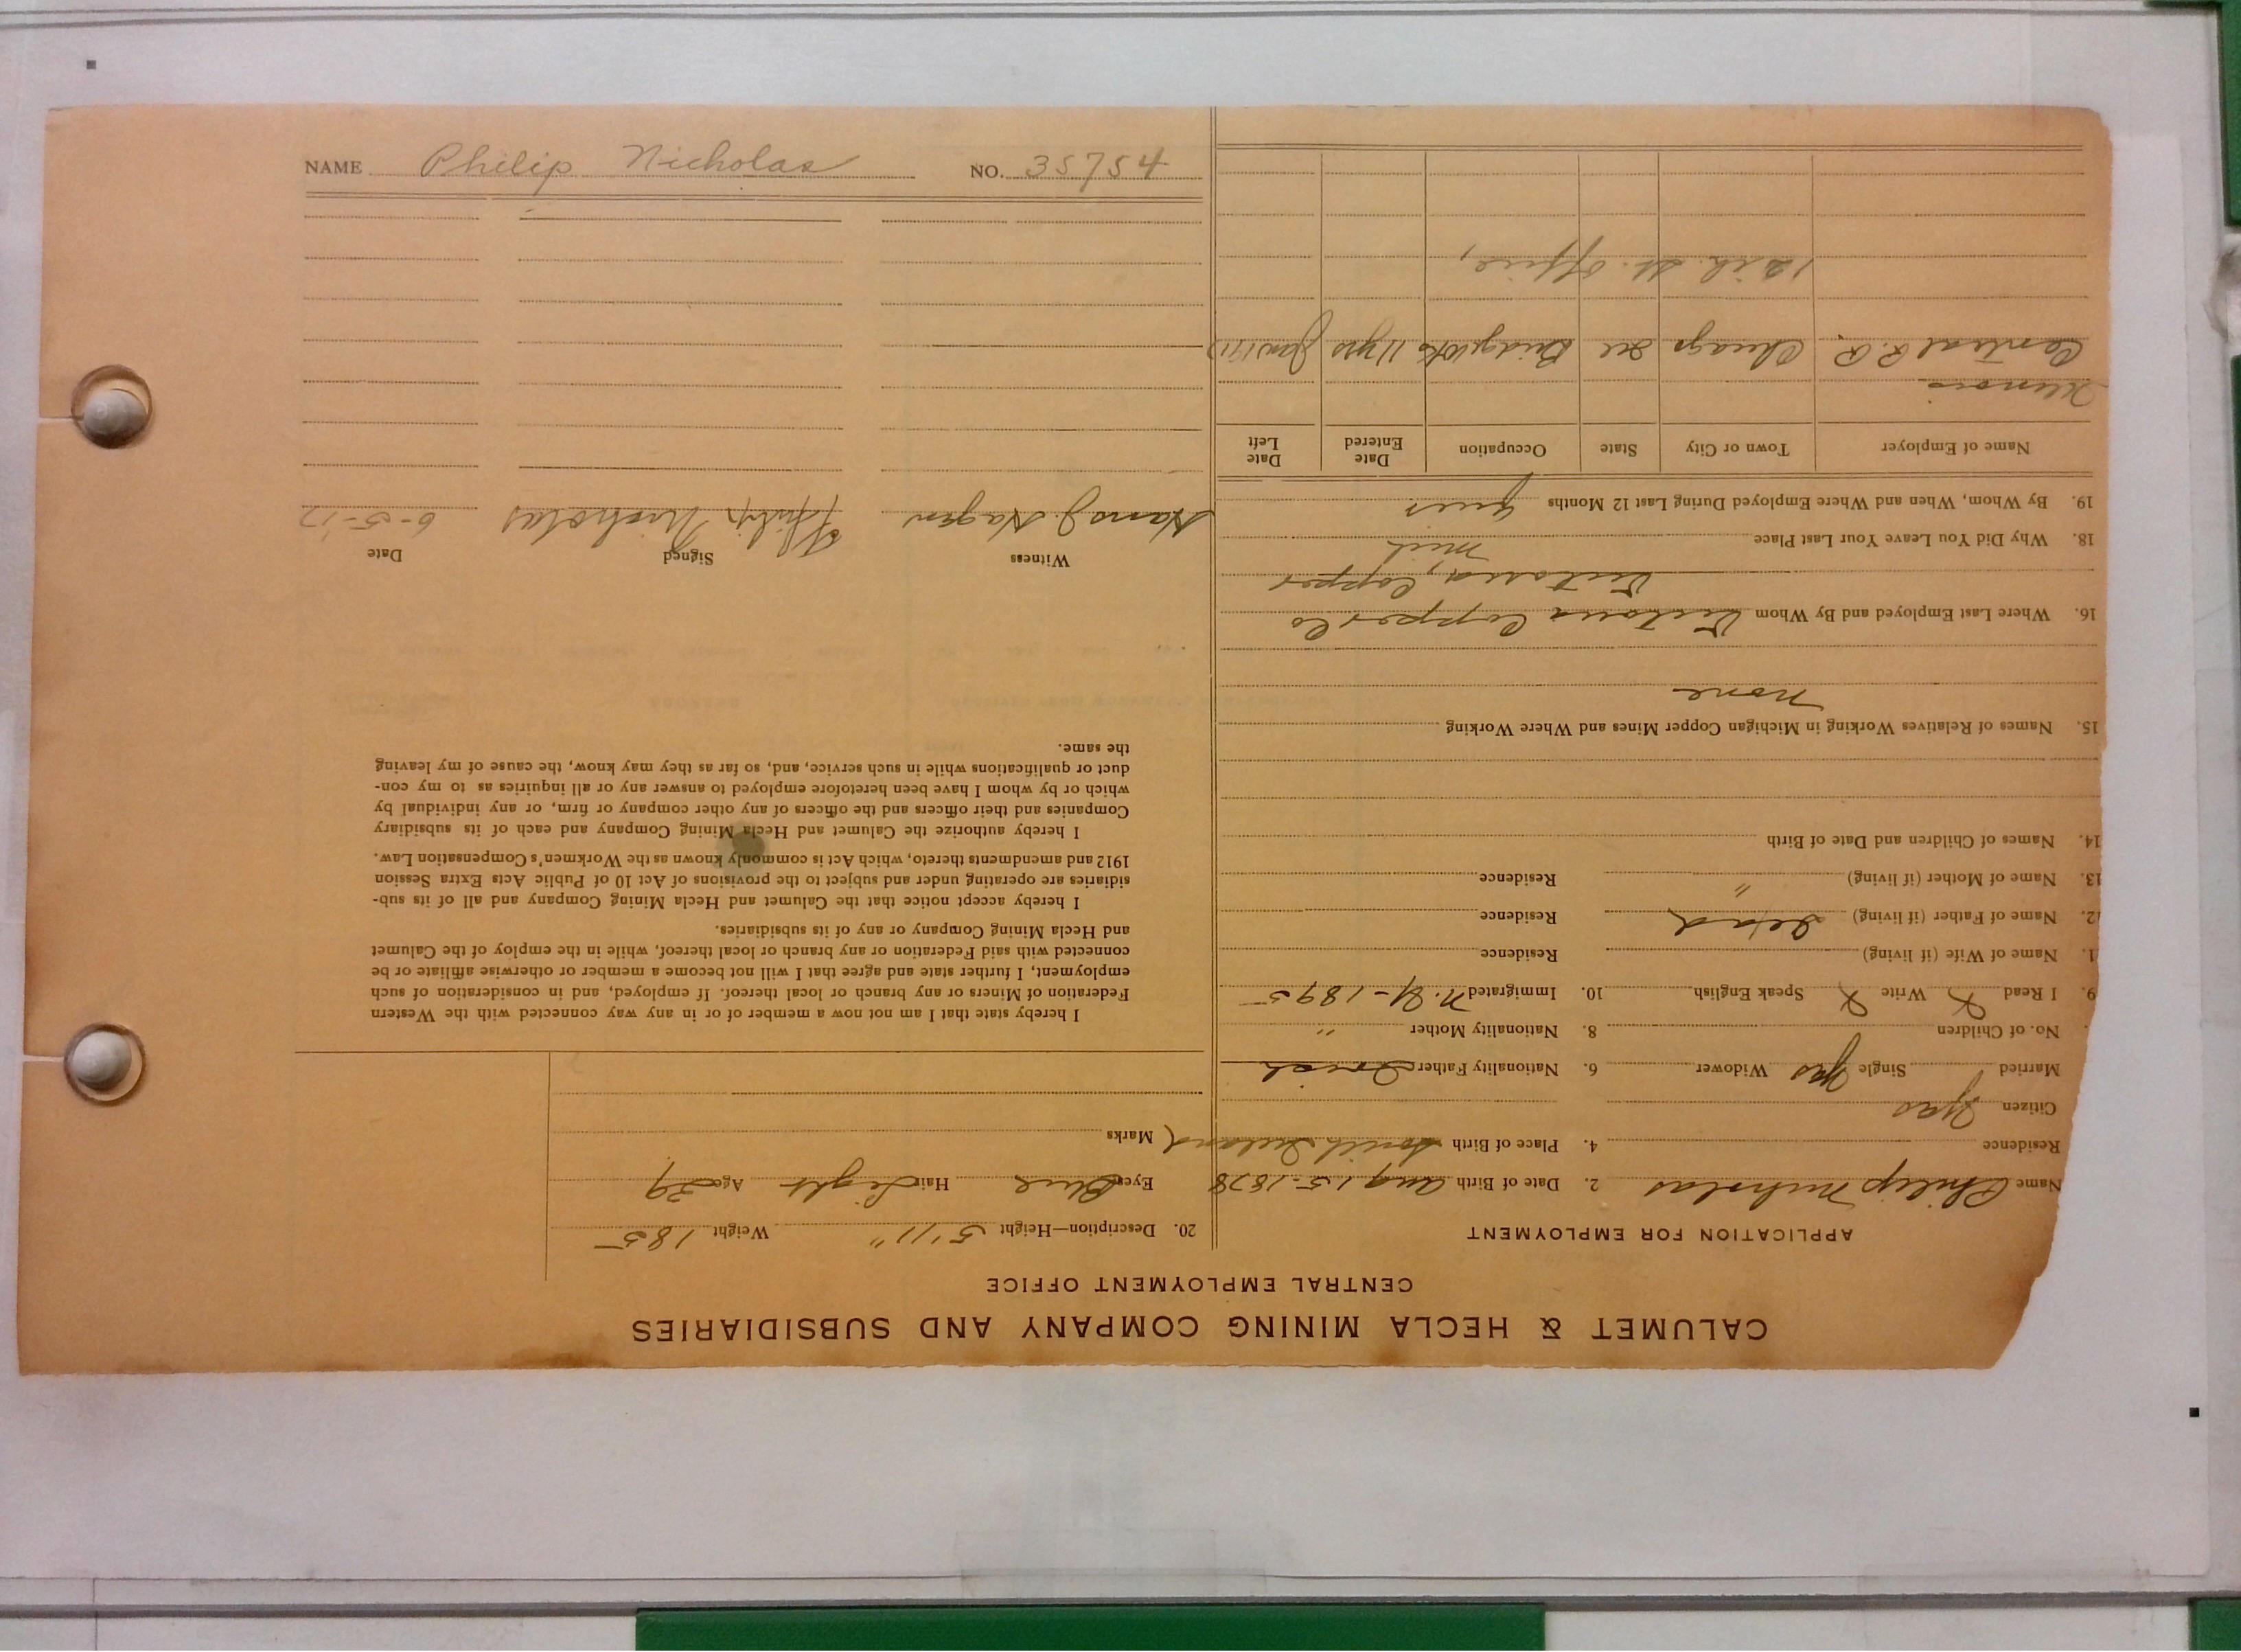 CALUMET & HECLA MINING COMPANY AND SUBSIDIARIES
CENTRAL EMPLOYMENT OFFICE
APPLICATION FOR EMPLOYMENT
Name Philip Nicholas 2. Date of Birth Aug 15-1878
Residence 4. Place of Birth South Ireland
Citizen Yas
Married Single Yas Widower 6. Nationality Father Irish
No. of Children 8. Nationality Mother "
9. I Read X Write X Speak English 10. Immigrated N.Y-1895
1. Name of Wife (if living) Residence
2. Name of Father (if living) Dead Residence
13. Name of Mother (if living) " Residence
14. Names of Children and Date of Birth
15. Names of Relatives Working in Michigan Copper Mines and Where Working
None
16. Where Last Employed and By Whom Victoria Copper Co
Victoria, Copper
Mich
18. Why Did You Leave Your Last Place
19. By Whom, When and Where Employed During Last 12 Months
Name of Employer Town or City State Occupation Date Entered Date Left
Illinois
Central R.R. Chicago Ill Bridge Wk 11 yrs Jan 1917
12th. St. Office,
20. Description—Height 5'11" Weight 185
Eyes Blue Hair Light Age 39
Marks
I hereby state that I am not now a member of or in any way connected with the Western
Federation of Miners or any branch or local thereof. If employed, and in consideration of such
employment, I further state and agree that I will not become a member or otherwise affiliate or be
connected with said Federation or any branch or local thereof, while in the employ of the Calumet
and Hecla Mining Company or any of its subsidiaries.
I hereby accept notice that the Calumet and Hecla Mining Company and all of its sub-
sidiaries are operating under and subject to the provisions of Act 10 of Public Acts Extra Session
1912 and amendments thereto, which Act is commonly known as the Workmen's Compensation Law.
I hereby authorize the Calumet and Hecla Mining Company and each of its subsidiary
Companies and their officers and the officers of any other company or firm, or any individual by
which or by whom I have been heretofore employed to answer any or all inquiries as to my con-
duct or qualifications while in such service, and, so far as they may know, the cause of my leaving
the same.
Witness Signed Date
Hans J. Hagen Philip Nicholas 6-5-17
NAME Philip Nicholas NO. 35754